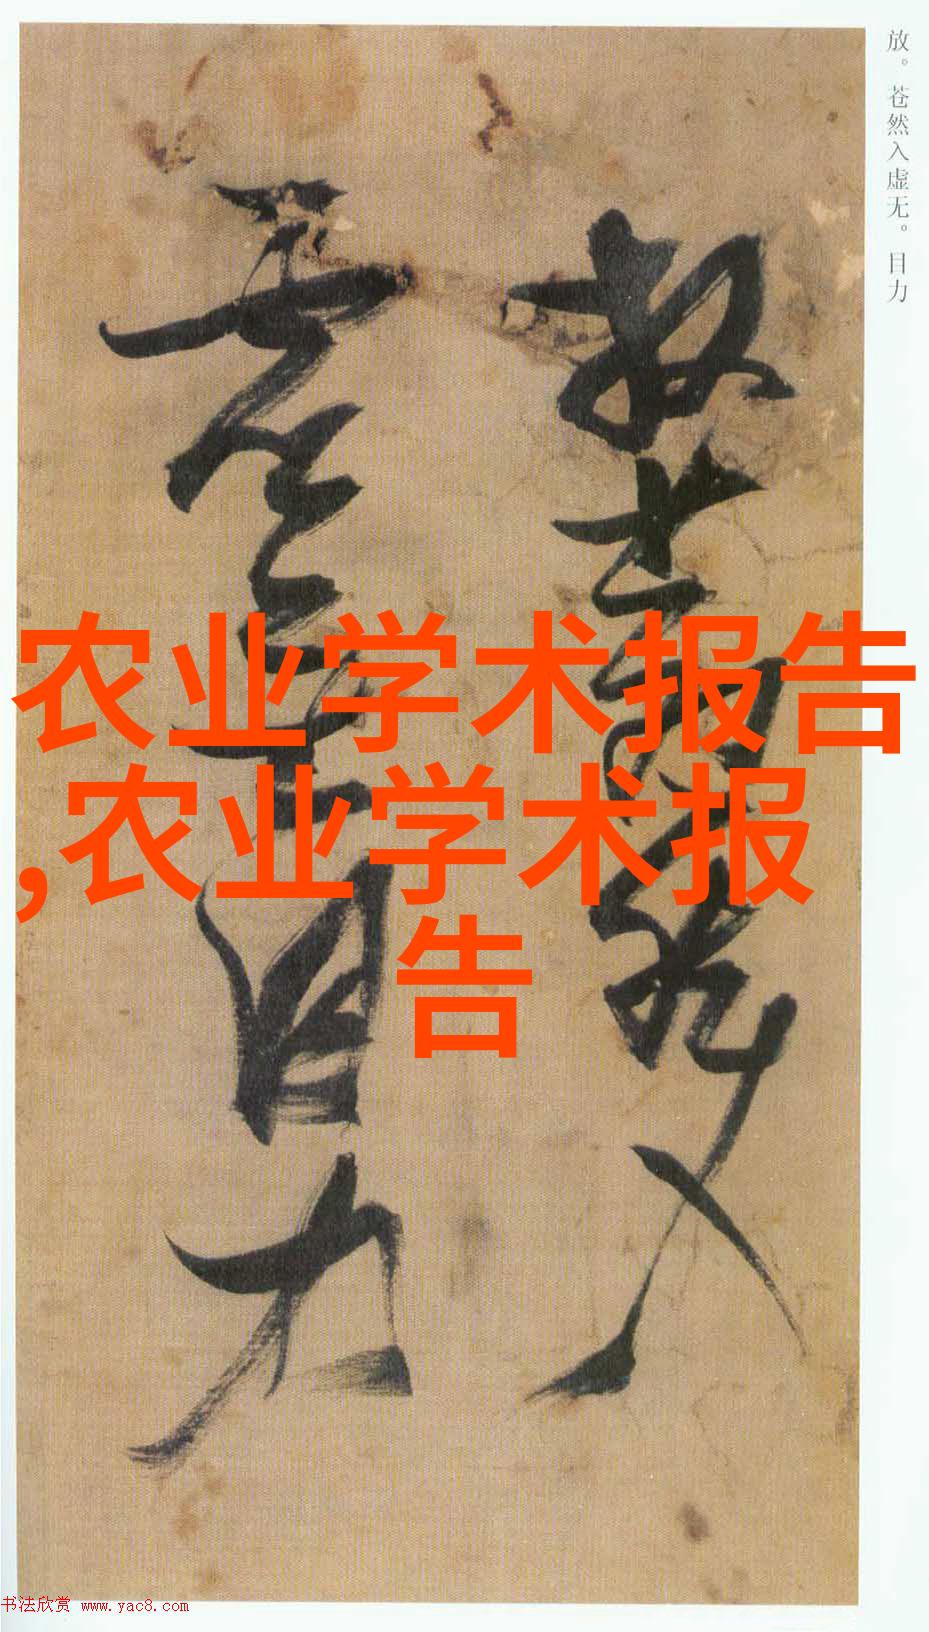 放。苍然入虚无。目力
放苍然入
虚无目力
农业学术报告
,农业学术报
告
书法欣赏 www.yac8.com